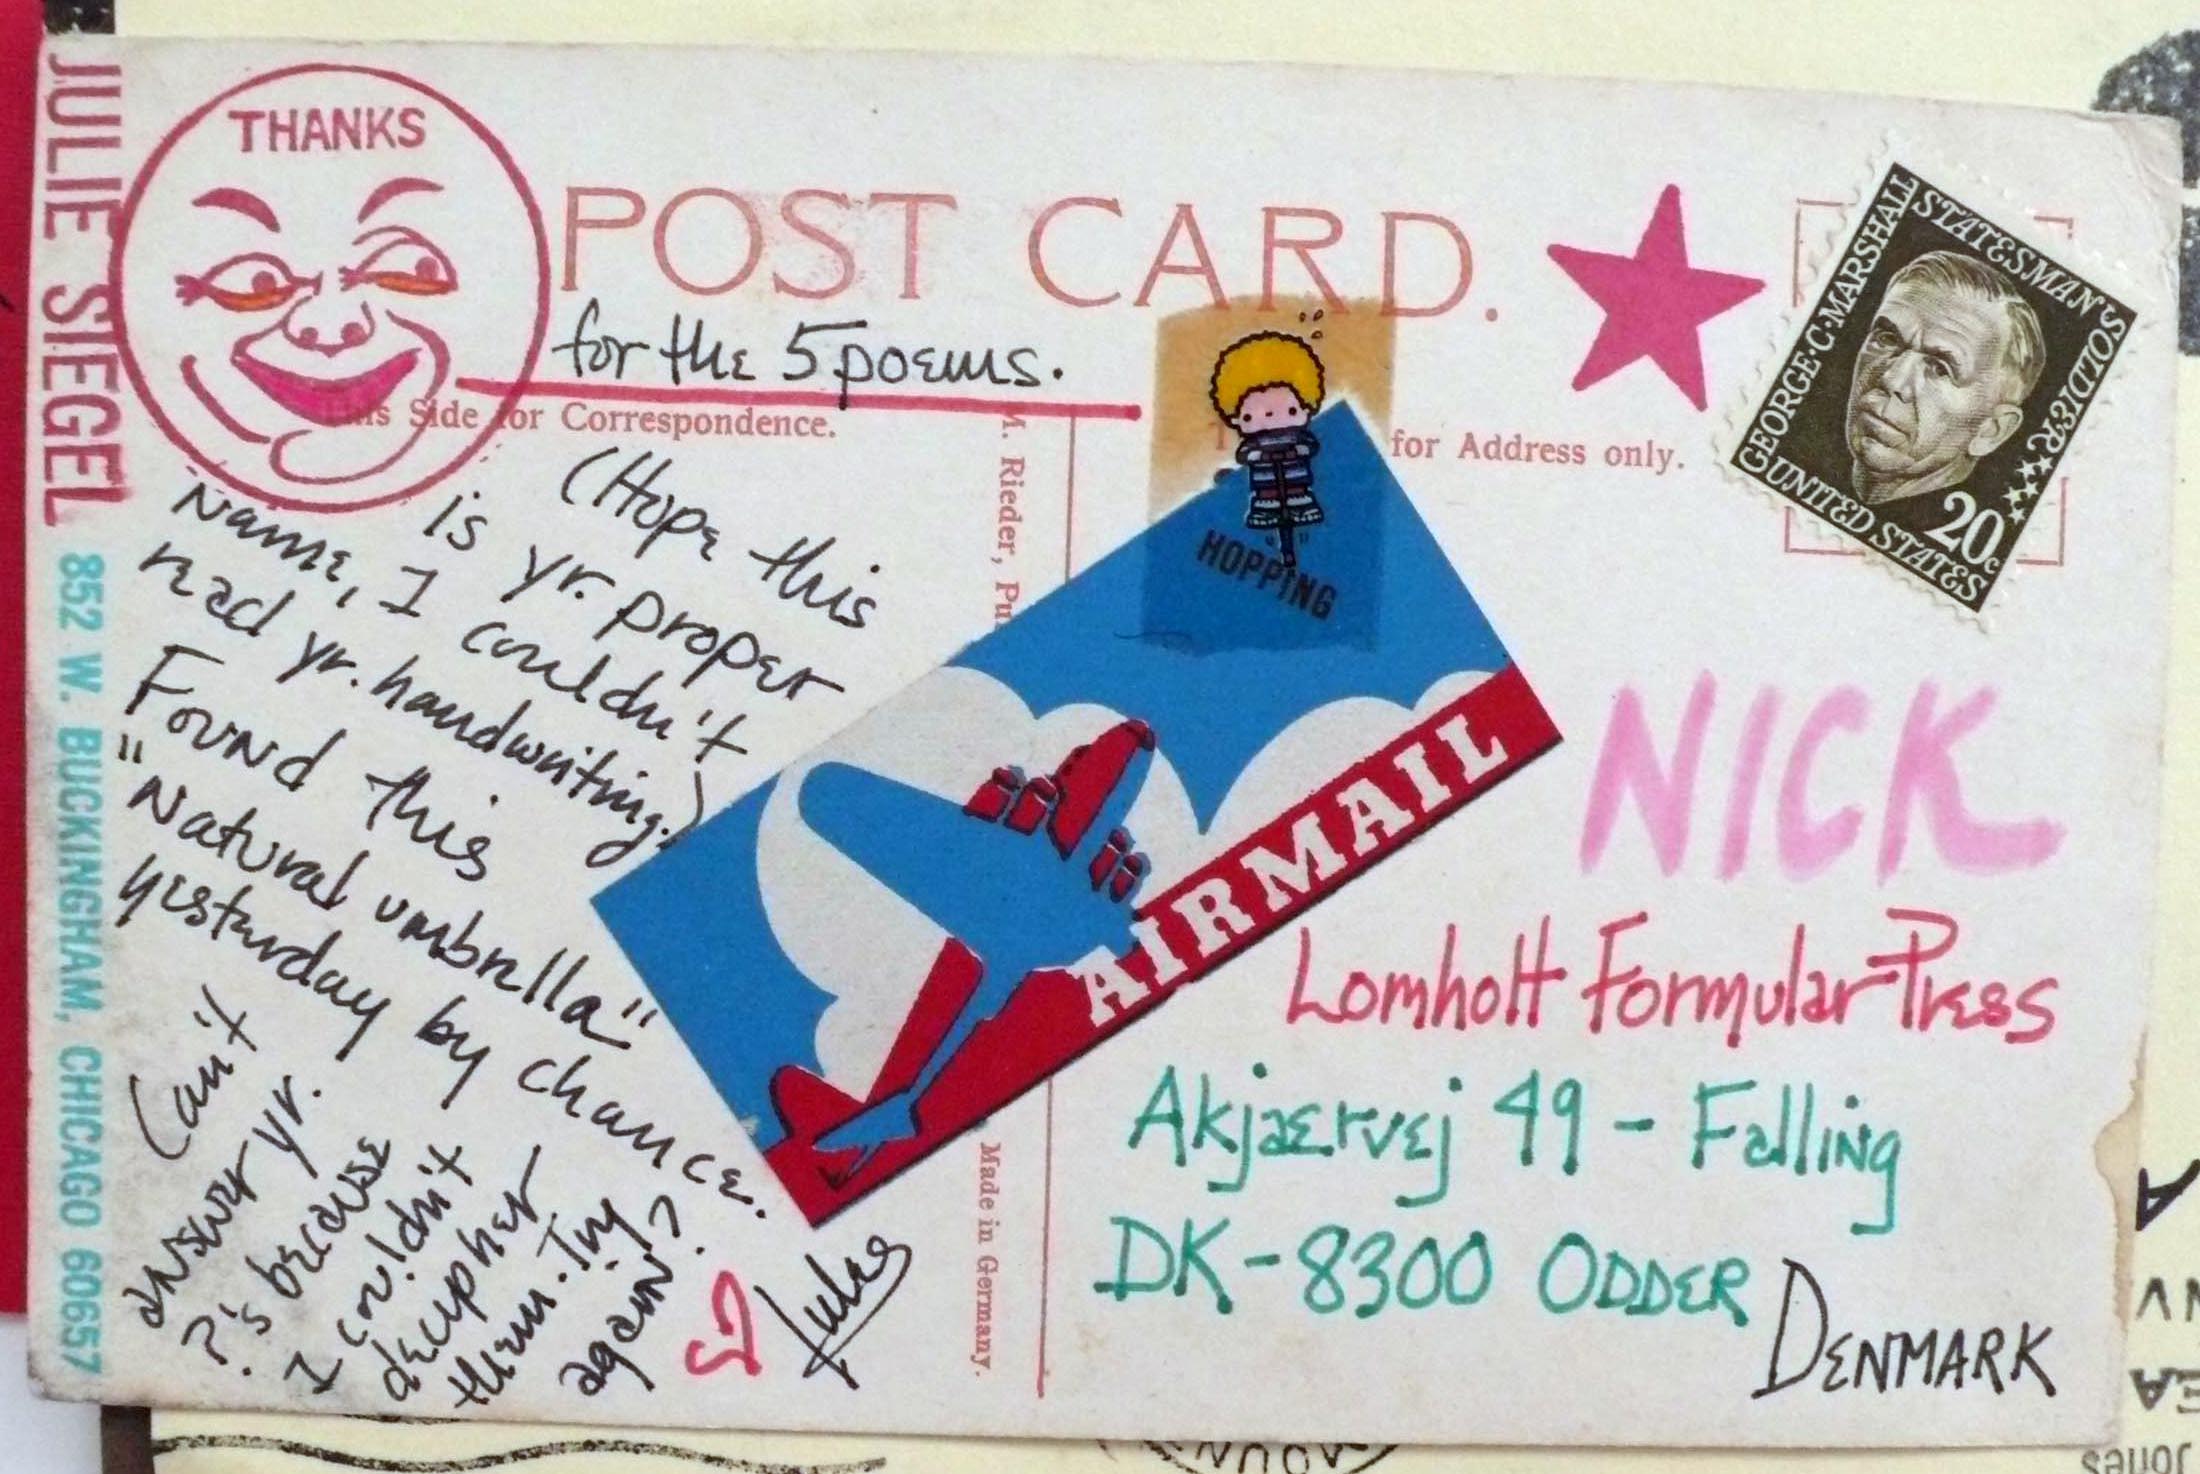 JULIE SIEGEL 852 W. BUCKINGHAM, CHICAGO 60657
THANKS
POST CARD.
for the 5 poems.
This Side for Correspondence.
for Address only.
M. Rieder, Pu
Made in Germany.
(Hope this
is yr. proper
name, I couldn't
read yr. handwriting.)
Found this
"Natural umbrella"
yesterday by chance.
Can't
answer yr.
?'s because
I couldn't
decipher
them. Try
again?
HOPPING
AIRMAIL
GEORGE·C·MARSHALL
STATESMAN
SOLDIER
UNITED STATES
20c
NICK
Lomholt Formular Press
Akjaervej 49 - Falling
DK-8300 ODDER
DENMARK
Jones